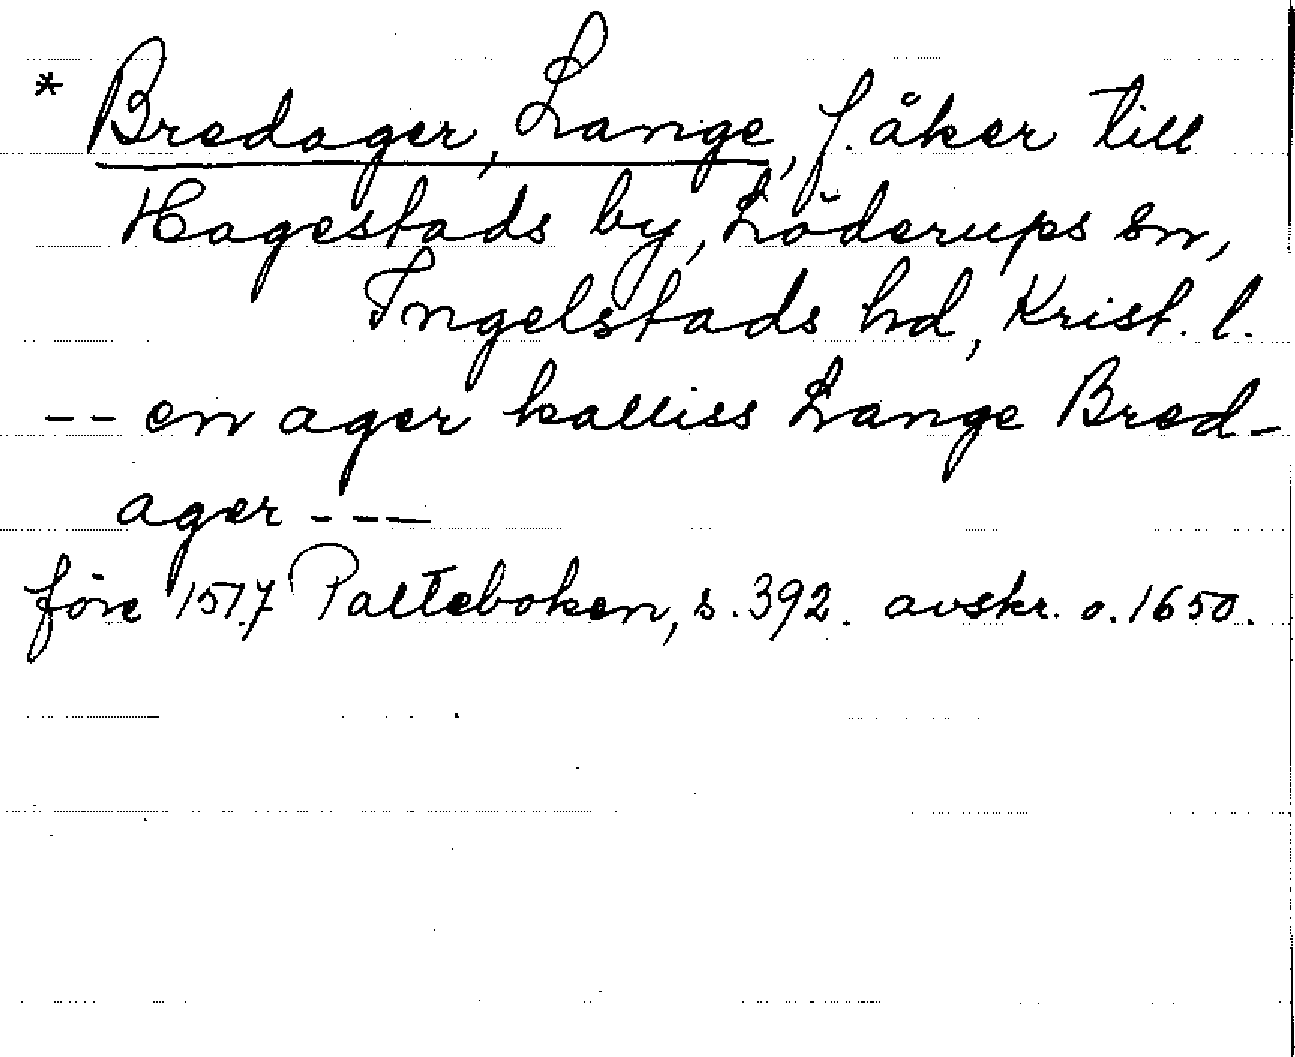 * Bredager, Lange, f. åker till
Hagestads by, Löderups sn,
Ingelstads hd, Krist. l.
-- en ager kalliss Lange Bred-
ager ---
före 1517 Palteboken, s. 392. avskr. o. 1650.